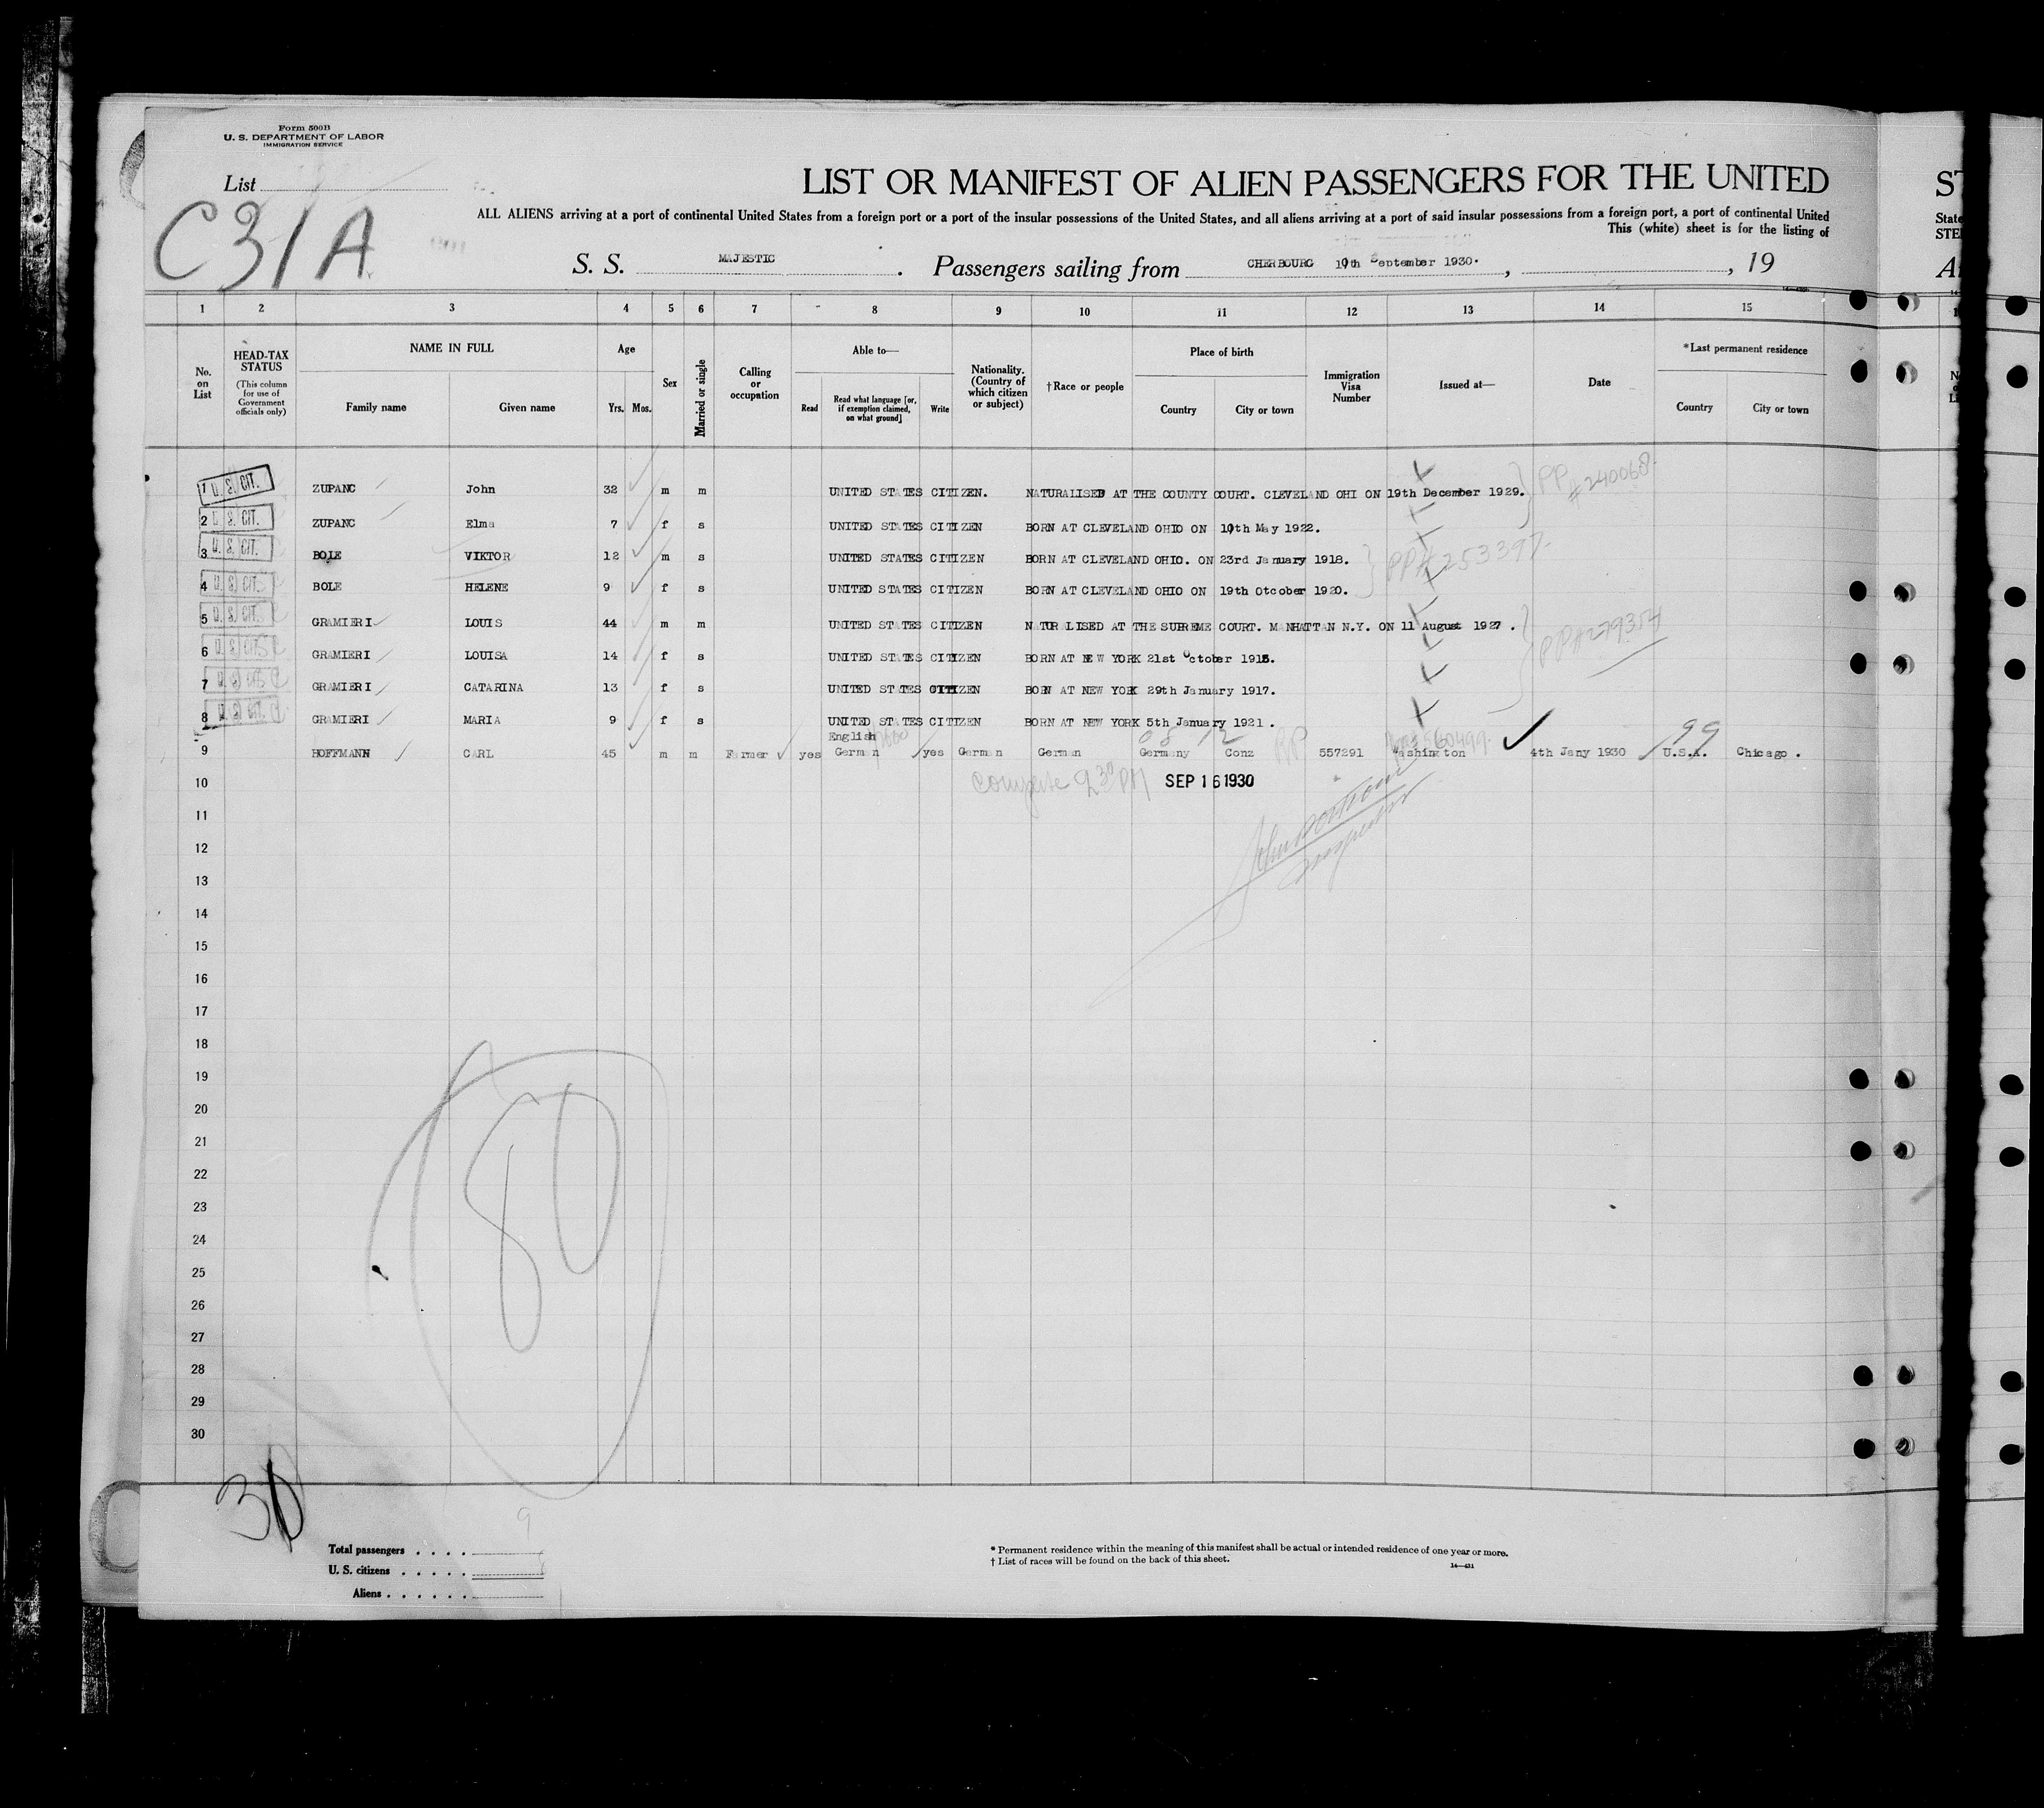 Form 500B
U. S. DEPARTMENT OF LABOR
IMMIGRATION SERVICE
List
C31A
LIST OR MANIFEST OF ALIEN PASSENGERS FOR THE UNITED
ALL ALIENS arriving at a port of continental United States from a foreign port or a port of the insular possessions of the United States, and all aliens arriving at a port of said insular possessions from a foreign port, a port of continental United
This (white) sheet is for the listing of
S. S. MAJESTIC . Passengers sailing from CHERBOURG 10th September 1930. , , 19
1 2 3 4 5 6 7 8 9 10 11 12 13 14 15
No. on List
HEAD-TAX STATUS
(This column for use of Government officials only)
NAME IN FULL
Family name Given name
Age
Yrs. Mos.
Sex
Married or single
Calling or occupation
Able to—
Read
Read what language [or, if exemption claimed, on what ground]
Write
Nationality. (Country of which citizen or subject)
†Race or people
Place of birth
Country City or town
Immigration Visa Number
Issued at—
Date
*Last permanent residence
Country City or town
1 U. S. CIT. ZUPANC John 32 m m UNITED STATES CITIZEN. NATURALISED AT THE COUNTY COURT. CLEVELAND OHI ON 19th December 1929. PP #240068.
2 U. S. CIT. ZUPANC Elma 7 f s UNITED STATES CITIZEN BORN AT CLEVELAND OHIO ON 10th May 1922.
3 U. S. CIT. BOLE VIKTOR 12 m s UNITED STATES CITIZEN BORN AT CLEVELAND OHIO. ON 23rd January 1918. PP#253397.
4 U. S. CIT. BOLE HELENE 9 f s UNITED STATES CITIZEN BORN AT CLEVELAND OHIO ON 19th Otcober 1920.
5 U. S. CIT. GRAMIERI LOUIS 44 m m UNITED STATES CITIZEN NATURALISED AT THE SUPREME COURT. MANHATTAN N.Y. ON 11 August 1927 . PP#279354
6 U. S. CIT. GRAMIERI LOUISA 14 f s UNITED STATES CITIZEN BORN AT NEW YORK 21st October 1915.
7 U. S. CIT. GRAMIERI CATARINA 13 f s UNITED STATES CITIZEN BORN AT NEW YORK 29th January 1917.
8 U. S. CIT. GRAMIERI MARIA 9 f s UNITED STATES CITIZEN BORN AT NEW YORK 5th January 1921 .
English
9 HOFFMANN CARL 45 m m Farmer yes German yes German German Germany Conz RP 557291 Washington 4th Jany 1930 U.S.A. Chicago .
99
10 SEP 16 1930
11
12
13
14
15
16
17
18
19
20
21
22
23
24
25
26
27
28
29
30
80
30
9
Total passengers . . . .
U. S. citizens . . . . .
Aliens . . . . . .
* Permanent residence within the meaning of this manifest shall be actual or intended residence of one year or more.
† List of races will be found on the back of this sheet.
14—431